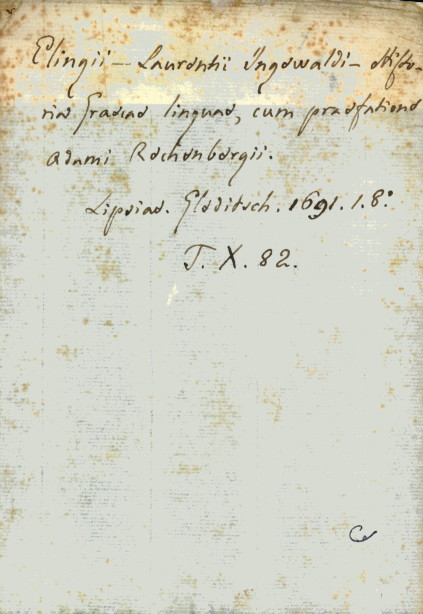 Elingii — Laurentii Ingewaldi — Histo-
riae Graecae linguae, cum praefatione
Adami Rechenbergii.
Lipsiae. Gleditsch. 1691. 1. 8º
T. X. 82.